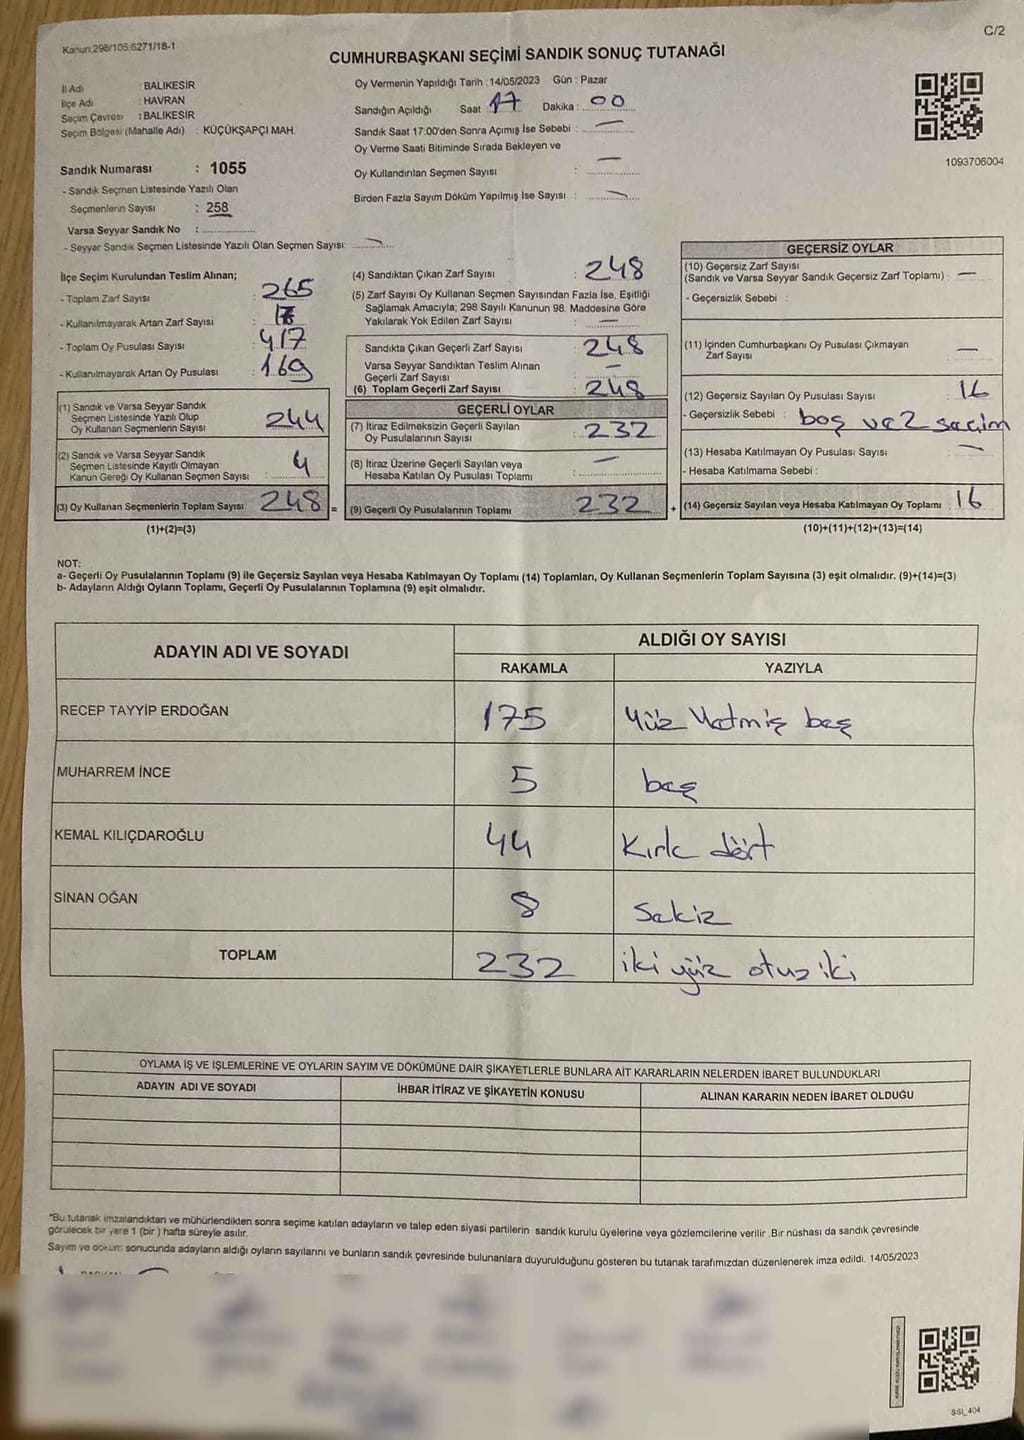 Kanun:298/105,6271/18-1
C/2
CUMHURBAŞKANI SEÇİMİ SANDIK SONUÇ TUTANAĞI
İl Adı : BALIKESİR
İlçe Adı : HAVRAN
Seçim Çevresi : BALIKESİR
Seçim Bölgesi (Mahalle Adı) : KÜÇÜKŞAPÇI MAH.
Oy Vermenin Yapıldığı Tarih : 14/05/2023 Gün : Pazar
Sandığın Açıldığı Saat 17 Dakika : 00
Sandık Saat 17:00'den Sonra Açımış İse Sebebi : —
Oy Verme Saati Bitiminde Sırada Bekleyen ve
Oy Kullandırılan Seçmen Sayısı : —
Birden Fazla Sayım Döküm Yapılmış İse Sayısı : —
1093706004
Sandık Numarası : 1055
- Sandık Seçmen Listesinde Yazılı Olan
Seçmenlerin Sayısı : 258
Varsa Seyyar Sandık No :
- Seyyar Sandık Seçmen Listesinde Yazılı Olan Seçmen Sayısı: —
İlçe Seçim Kurulundan Teslim Alınan;
- Toplam Zarf Sayısı : 265
- Kullanılmayarak Artan Zarf Sayısı :
- Toplam Oy Pusulası Sayısı : 417
- Kullanılmayarak Artan Oy Pusulası : 169
(1) Sandık ve Varsa Seyyar Sandık
Seçmen Listesinde Yazılı Olup
Oy Kullanan Seçmenlerin Sayısı : 244
(2) Sandık ve Varsa Seyyar Sandık
Seçmen Listesinde Kayıtlı Olmayan
Kanun Gereği Oy Kullanan Seçmen Sayısı : 4
(3) Oy Kullanan Seçmenlerin Toplam Sayısı 248 =
(1)+(2)=(3)
(4) Sandıktan Çıkan Zarf Sayısı : 248
(5) Zarf Sayısı Oy Kullanan Seçmen Sayısından Fazla İse, Eşitliği
Sağlamak Amacıyla; 298 Sayılı Kanunun 98. Maddesine Göre
Yakılarak Yok Edilen Zarf Sayısı : —
Sandıkta Çıkan Geçerli Zarf Sayısı : 248
Varsa Seyyar Sandıktan Teslim Alınan
Geçerli Zarf Sayısı : —
(6) Toplam Geçerli Zarf Sayısı : 248
GEÇERLİ OYLAR
(7) İtiraz Edilmeksizin Geçerli Sayılan
Oy Pusulalarının Sayısı : 232
(8) İtiraz Üzerine Geçerli Sayılan veya
Hesaba Katılan Oy Pusulası Toplamı : —
(9) Geçerli Oy Pusulalarının Toplamı 232 +
GEÇERSİZ OYLAR
(10) Geçersiz Zarf Sayısı
(Sandık ve Varsa Seyyar Sandık Geçersiz Zarf Toplamı) : —
- Geçersizlik Sebebi :
(11) İçinden Cumhurbaşkanı Oy Pusulası Çıkmayan
Zarf Sayısı : —
(12) Geçersiz Sayılan Oy Pusulası Sayısı : 16
- Geçersizlik Sebebi : boş ve 2 seçim
(13) Hesaba Katılmayan Oy Pusulası Sayısı : —
- Hesaba Katılmama Sebebi :
(14) Geçersiz Sayılan veya Hesaba Katılmayan Oy Toplamı : 16
(10)+(11)+(12)+(13)=(14)
NOT:
a- Geçerli Oy Pusulalarının Toplamı (9) ile Geçersiz Sayılan veya Hesaba Katılmayan Oy Toplamı (14) Toplamları, Oy Kullanan Seçmenlerin Toplam Sayısına (3) eşit olmalıdır. (9)+(14)=(3)
b- Adayların Aldığı Oyların Toplamı, Geçerli Oy Pusulalarının Toplamına (9) eşit olmalıdır.
ADAYIN ADI VE SOYADI
ALDIĞI OY SAYISI
RAKAMLA YAZIYLA
RECEP TAYYİP ERDOĞAN 175 Yüz Yetmiş beş
MUHARREM İNCE 5 beş
KEMAL KILIÇDAROĞLU 44 Kırk dört
SİNAN OĞAN 8 Sekiz
TOPLAM 232 iki yüz otuz iki
OYLAMA İŞ VE İŞLEMLERİNE VE OYLARIN SAYIM VE DÖKÜMÜNE DAİR ŞİKAYETLERLE BUNLARA AİT KARARLARIN NELERDEN İBARET BULUNDUKLARI
ADAYIN ADI VE SOYADI İHBAR İTİRAZ VE ŞİKAYETİN KONUSU ALINAN KARARIN NEDEN İBARET OLDUĞU
*Bu tutanak imzalandıktan ve mühürlendikten sonra seçime katılan adayların ve talep eden siyasi partilerin sandık kurulu üyelerine veya gözlemcilerine verilir. Bir nüshası da sandık çevresinde
görülecek bir yere 1 (bir) hafta süreyle asılır.
Sayım ve döküm sonucunda adayların aldığı oyların sayılarını ve bunların sandık çevresinde bulunanlara duyurulduğunu gösteren bu tutanak tarafımızdan düzenlenerek imza edildi. 14/05/2023
SSI_404